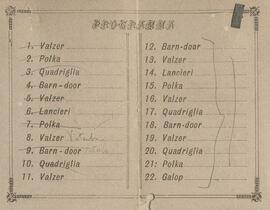 PROGRAMMA
1. Valzer
2. Polka
3. Quadriglia
4. Barn-door
5. Valzer
6. Lancieri
7. Polka
8. Valzer
9. Barn-door
10. Quadriglia
11. Valzer
12. Barn-door
13. Valzer
14. Lancieri
15. Polka
16. Valzer
17. Quadriglia
18. Barn-door
19. Valzer
20. Quadriglia
21. Polka
22. Galop